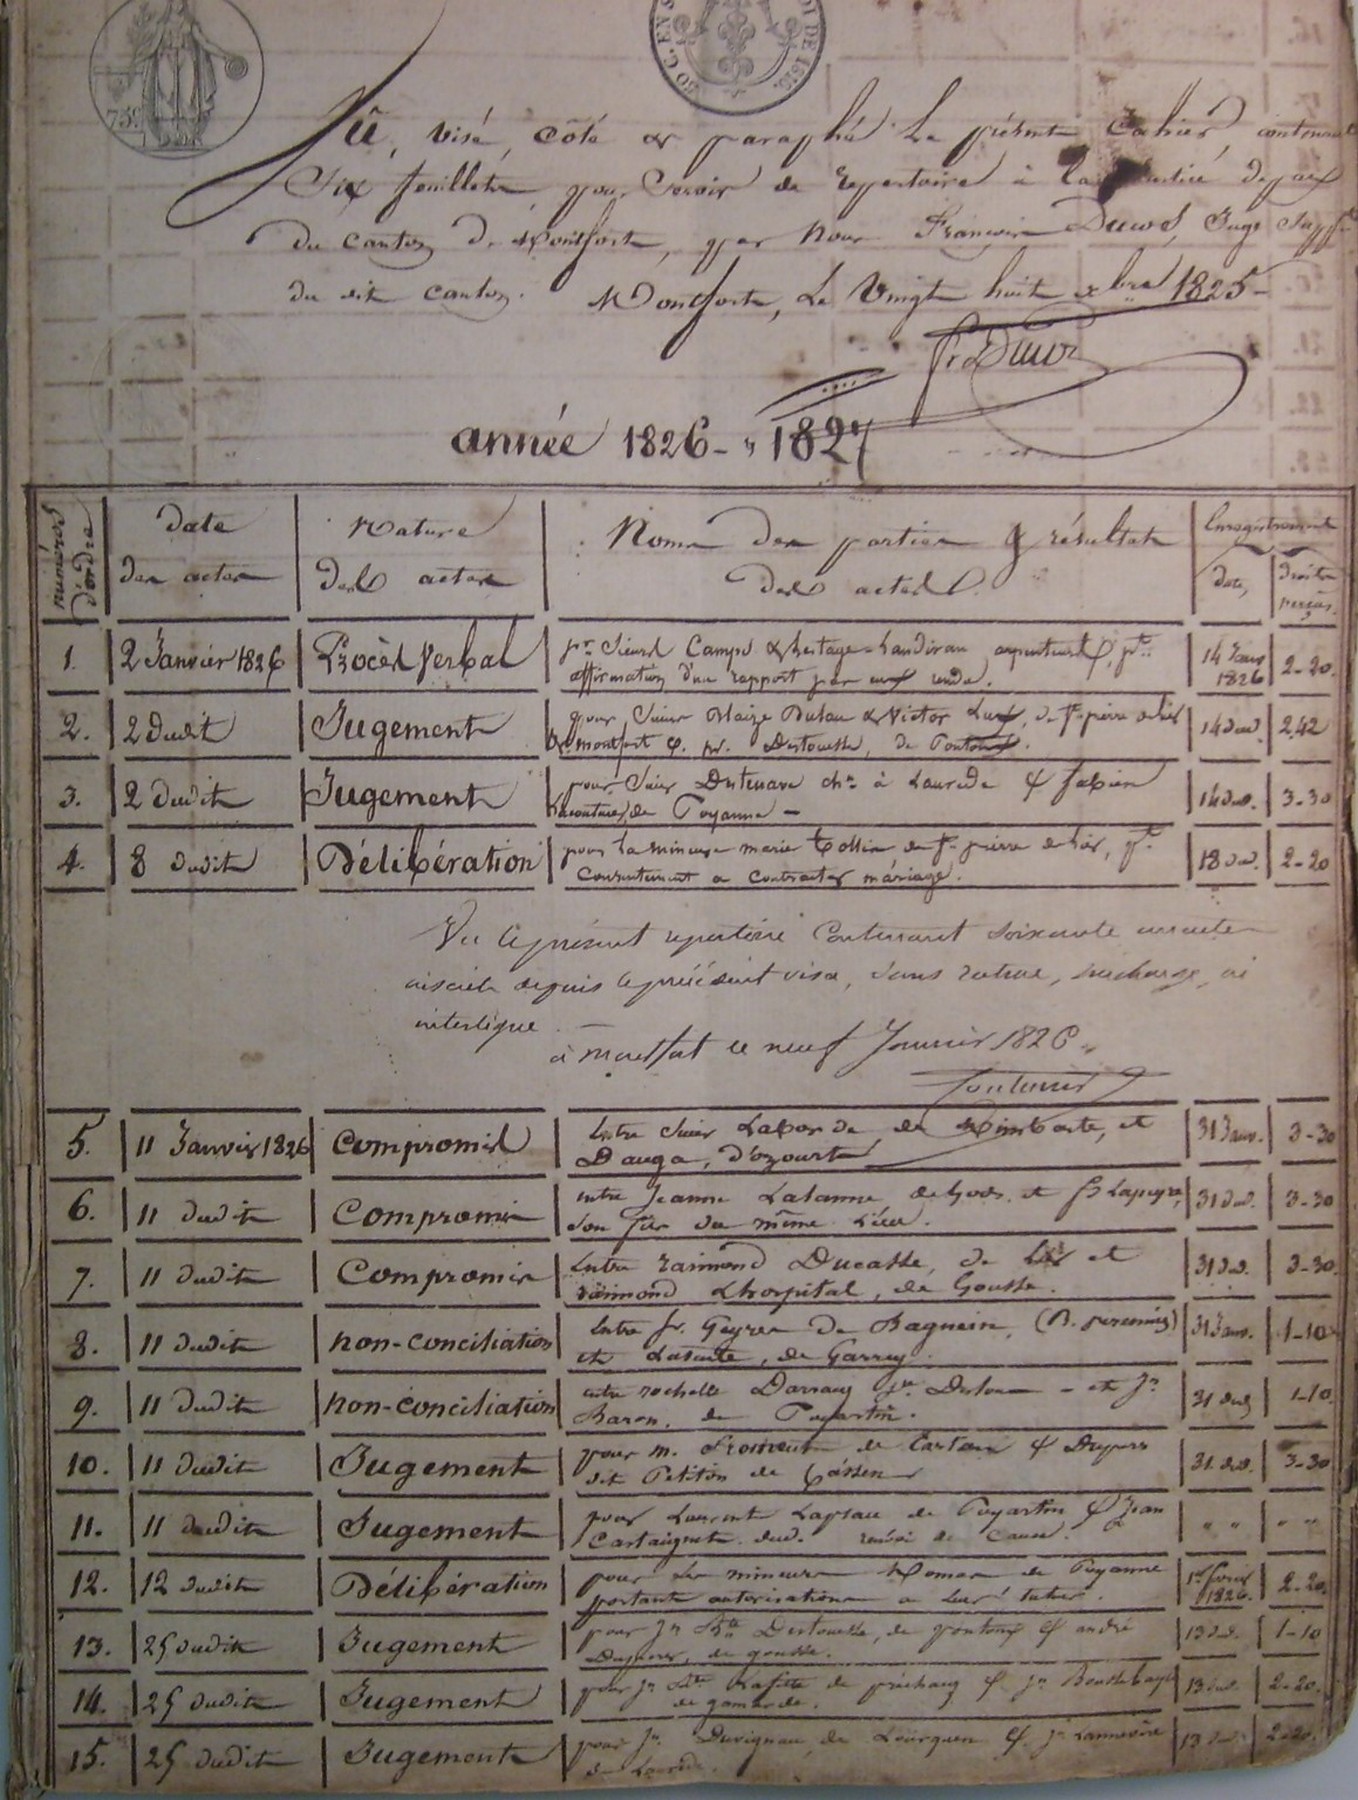 75c
DI DE 1816.
Vû, visé, côté & paraphé le présent Cahier, contenant
Six feuillets, pour Servir de repertoire à la justice de paix
du canton de Montfort, par Nous François Ducos, Juge Supp.
du dit canton. Montfort, Le Vingt huit xbre 1825
année 1826 - 1827
numéros d'ordre
date des actes
Nature des actes
Noms des parties & résultat des actes
Enregistrement
date
droits perçus
1. 2 Janvier 1826 Procès Verbal pr. Sieurs Camps & arpenteurs, pr. 14 Janv 1826 2-20.
affirmation d'un rapport par eux rendu.
2. 2 Dudit Jugement pour Sieur Blaize Dulau & Victor de St. pierre 14 dud. 2,42
montfort & Destouesse, de
3. 2 dudit Jugement pour Sieur à Laurede & fabien 14 dud. 3-30
de Poyanne -
4. 8 dudit Délibération pour la mineure marie de St. pierre pr. 18 dud. 2-20
consentement a contracter mariage.
Vu le présent repertoire Contenant soixante
depuis le précédent visa, sans rature, surcharge, ni
interligne.
à Montfort le neuf Janvier 1826
5. 11 Janvier 1826 Compromis Entre Sieur Laborde, de Mimbaste, et 31 Janv. 3-30
Dauga, d'ozourt
6. 11 dudit Compromis entre Jeanne Lalanne, et Lapeyre, 31 dud. 3-30
son fils du même lieu.
7. 11 dudit Compromis Entre raimond Ducasse, de et 31 dud. 3-30.
raimond Lhospital, de Gousse.
8. 11 dudit non-conciliation Entre fr. Geyres de 31 Janv. 1-10
et Lasalle, de Garrey.
9. 11 dudit non-conciliation entre rochelle Darracq et Jn. 31 dud 1-10.
Baron, de Poyartin.
10. 11 dudit Jugement pour m. Fromentin & 31 dud. 3-30
dit Petiton de Cassen
11. 11 dudit Jugement pour Laurent Laplau de Poyartin & Jean " " " "
Castaignet dud. renvoi de Cause.
12. 12 dudit Délibération pour les mineurs de Poyanne 1er fevrier 1826. 2-20.
portant autorisation a leur tuteur.
13. 25 dudit Jugement pour Jn. Bte Destouesse, de pontonx & andré 13 dud. 1-10
de gousse.
14. 25 dudit Jugement pour Jn. Bte Lafitte de préchacq & Jn. 13 dud. 2-20.
de gamarde.
15. 25 dudit Jugement pour Jn. Duvignau, de Lourquen & Jn. 13 dud. 2-20.